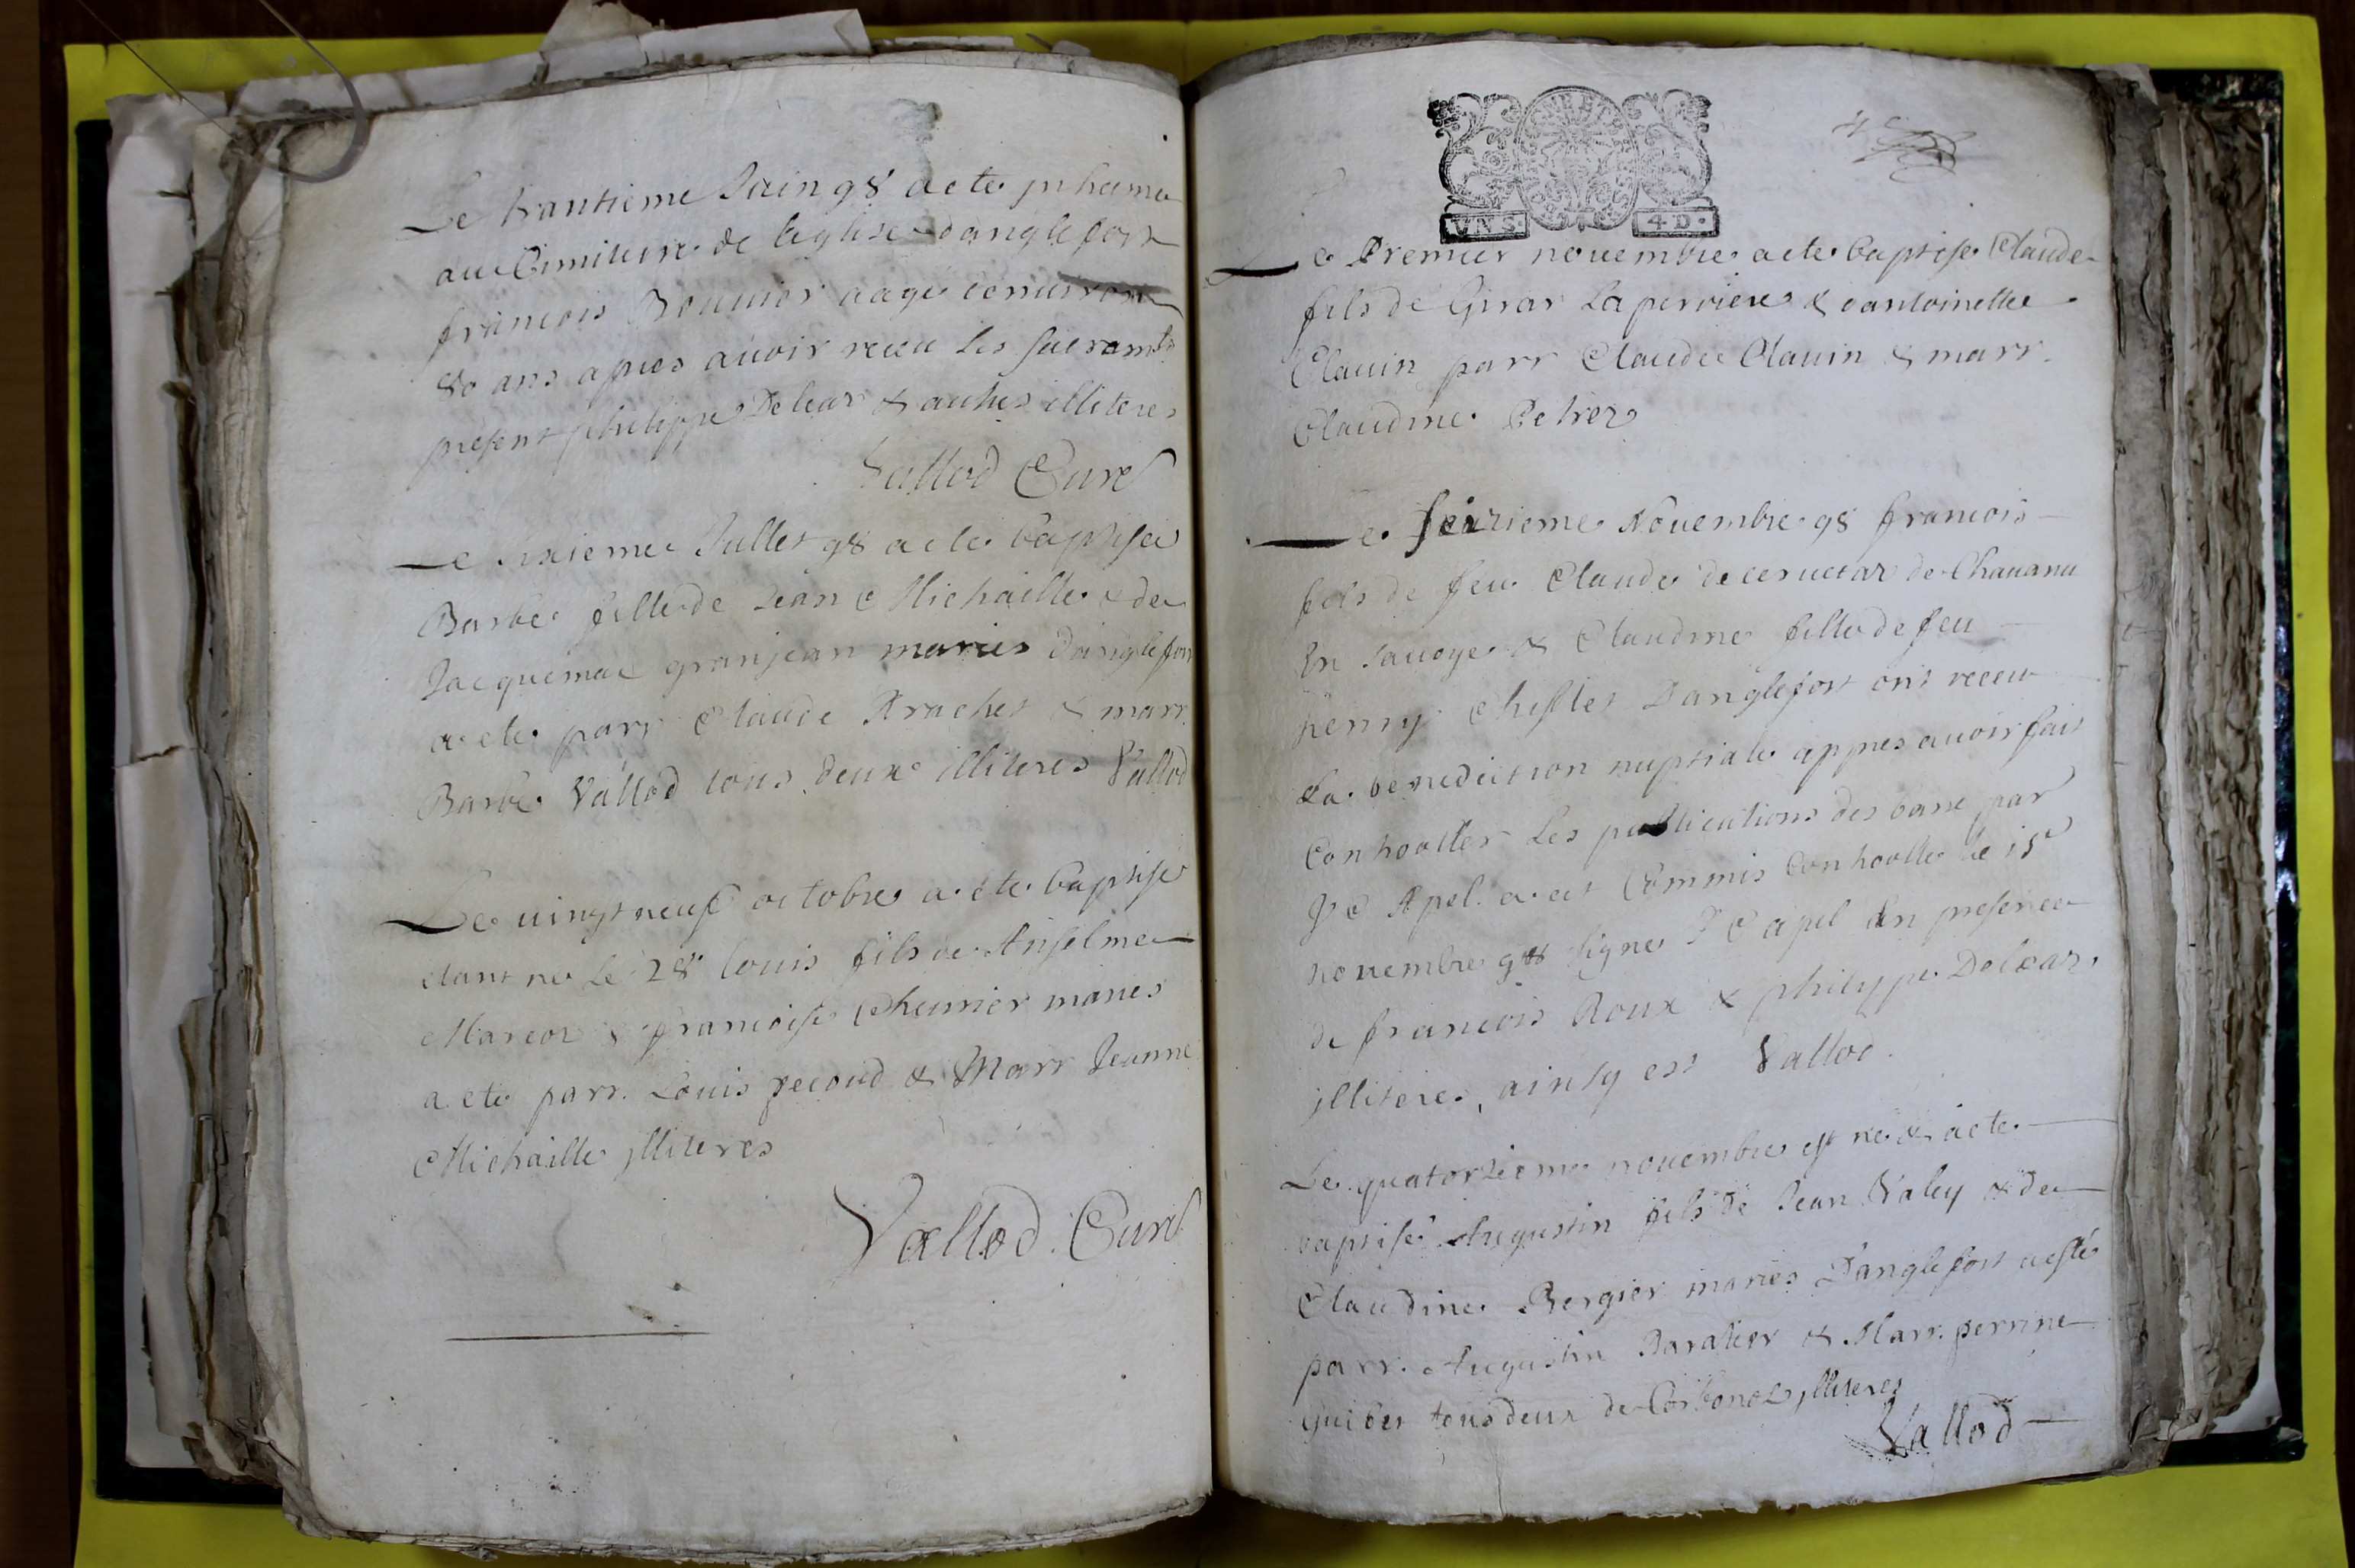 Le trantieme Juin 98 a ete inhume
au Cimitiere de leglise danglefort
francois Bouvier aage denviron
80 ans apres avoir receu les sacramts
present philippe Delear & autres illiteres
Vallod Curé
Le sixieme Jullet 98 a ete baptisee
Barbe fille de Jean Michaille & de
Jacquemae granjean maries danglefort
a ete parr Claude Brachet & marr.
Barbe Vallod tous deux illiteres Vallod
Le vingt neuf octobre a ete baptise
etant ne le 28 louis fils de Anselme
Marcoz & francoise Chevrier maries
a ete parr. Louis recoud & Marr Jeanne
Michaille illiteres
Vallod Curé
VN S. 4 D.
Le Premier novembre a ete baptise Claude
fils de Girar Laperriere & dantoinette
Clavin parr Claude Clavin & marr.
Claudine Petrez
Le seizieme Novembre 98 francois
fils de feu Claude de de Chavanu
En Savoye & Claudine fille de feu
henry Chestet Danglefort ont receu
La benediction nuptiale appres avoir fait
Controoller Les publications des bans par
J C Apel a cet Commis Controolle le 15e
novembre 98 signe J C apel En presence
de francois Roux & philippe Delear
illiteres, ainsy est Vallod.
Le quatorzieme novembre est ne & a ete
baptisé Augustin fils de Jean Valey & de
Claudine Bergier maries Danglefort a esté
parr. Augustin Baratier & Marr. perrine
guibet tous deux de Corbonod illiteres
Vallod